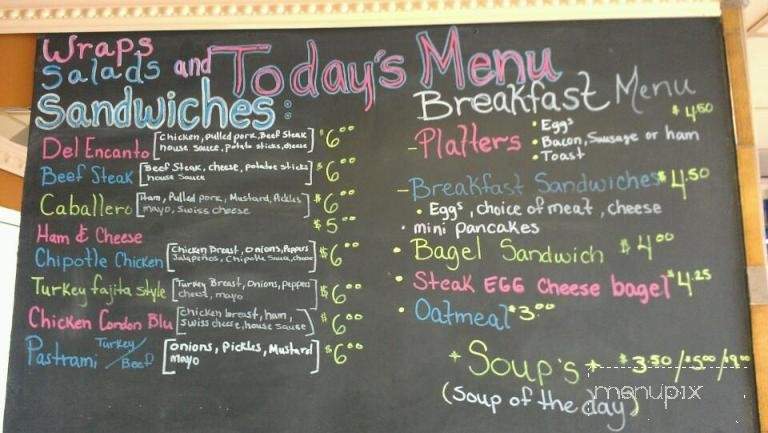 Today's Menu
Wraps
Salads and
Sandwiches:
Del Encanto [chicken, pulled pork, Beef Steak $6.00
house sauce, potato sticks, cheese]
Beef Steak [Beef Steak, cheese, potatoe sticks $6.00
house sauce]
Caballero [Ham, Pulled pork, Mustard, Pickles $6.00
mayo, swiss cheese]
Ham & Cheese $5.00
Chipotle Chicken [Chicken Breast, Onions, Peppers $6.00
Jalapeños, Chipotle Sauce, cheese]
Turkey fajita style [Turkey Breast, Onions, peppers $6.00
cheese, mayo]
Chicken Cordon Blu [chicken breast, ham, $6.00
swiss cheese, house sause]
Pastrami Turkey/Beef [onions, Pickles, Mustard $6.00
mayo]
Breakfast Menu
- Platters $4.50
• Eggs
• Bacon, Sausage or ham
• Toast
- Breakfast Sandwiches $4.50
• Eggs, choice of meat, cheese
• mini pancakes
• Bagel Sandwich $4.00
• Steak EGG Cheese bagel $4.25
• Oatmeal $3.00
* Soup's * $3.50/$5.00/$9.00
(soup of the day)
menupix